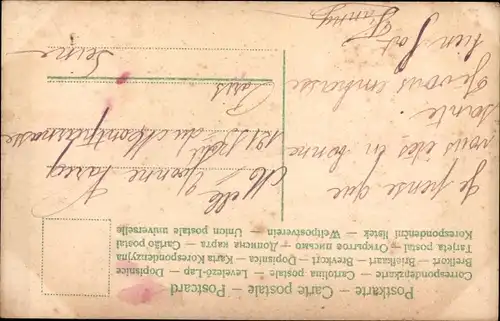 Postkarte — Carte postale — Postcard
Correspondenzkarte — Cartolina postale — Levelező-Lap — Dopisnice
Brefkort — Briefkaart — Brevkort — Dopisnica — Karta Korespondenzyjna
Tarjeta postal — Открытое письмо — Дописна карта — Cartão postal
Korespondenční lístek — Weltpostverein — Union postale universelle
je pense que
vous êtes en bonne
santé.
Je vous embrasse
bien fort
Fanny
Melle Yvonne
121 Bd du Montparnasse
Paris
Seine